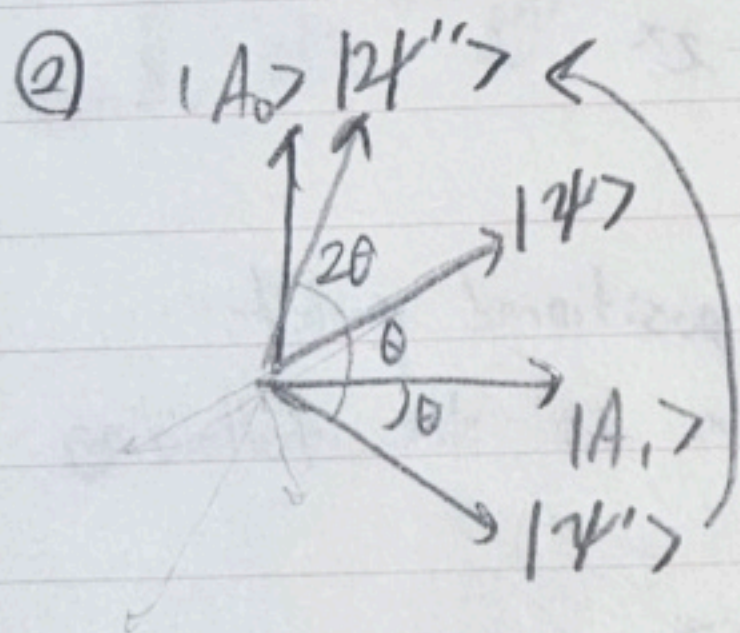 ② |A₀> |ψ''>
|ψ>
2θ
θ
θ
|A₁>
|ψ'>